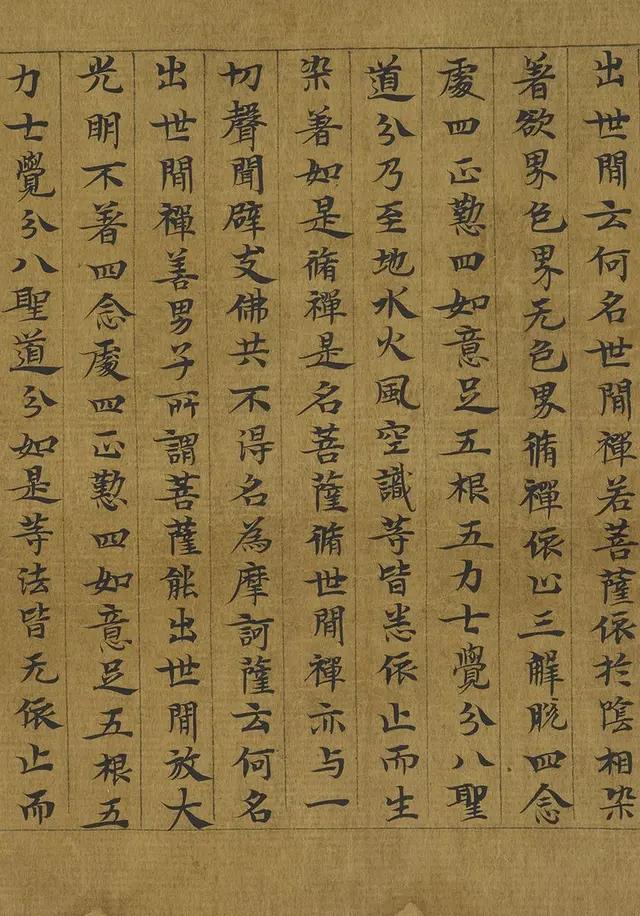 出世閒云何名世閒禪若菩薩依於陰相染
著欲界色界无色界脩禪依止三解脫四念
處四正懃四如意足五根五力士覺分八聖
道分乃至地水火風空識等皆悉依止而生
染著如是脩禪是名菩薩脩世閒禪亦与一
切聲聞辟支佛共不得名為摩訶薩云何名
出世閒禪善男子所謂菩薩能出世閒放大
光明不著四念處四正懃四如意足五根五
力士覺分八聖道分如是等法皆无依止而